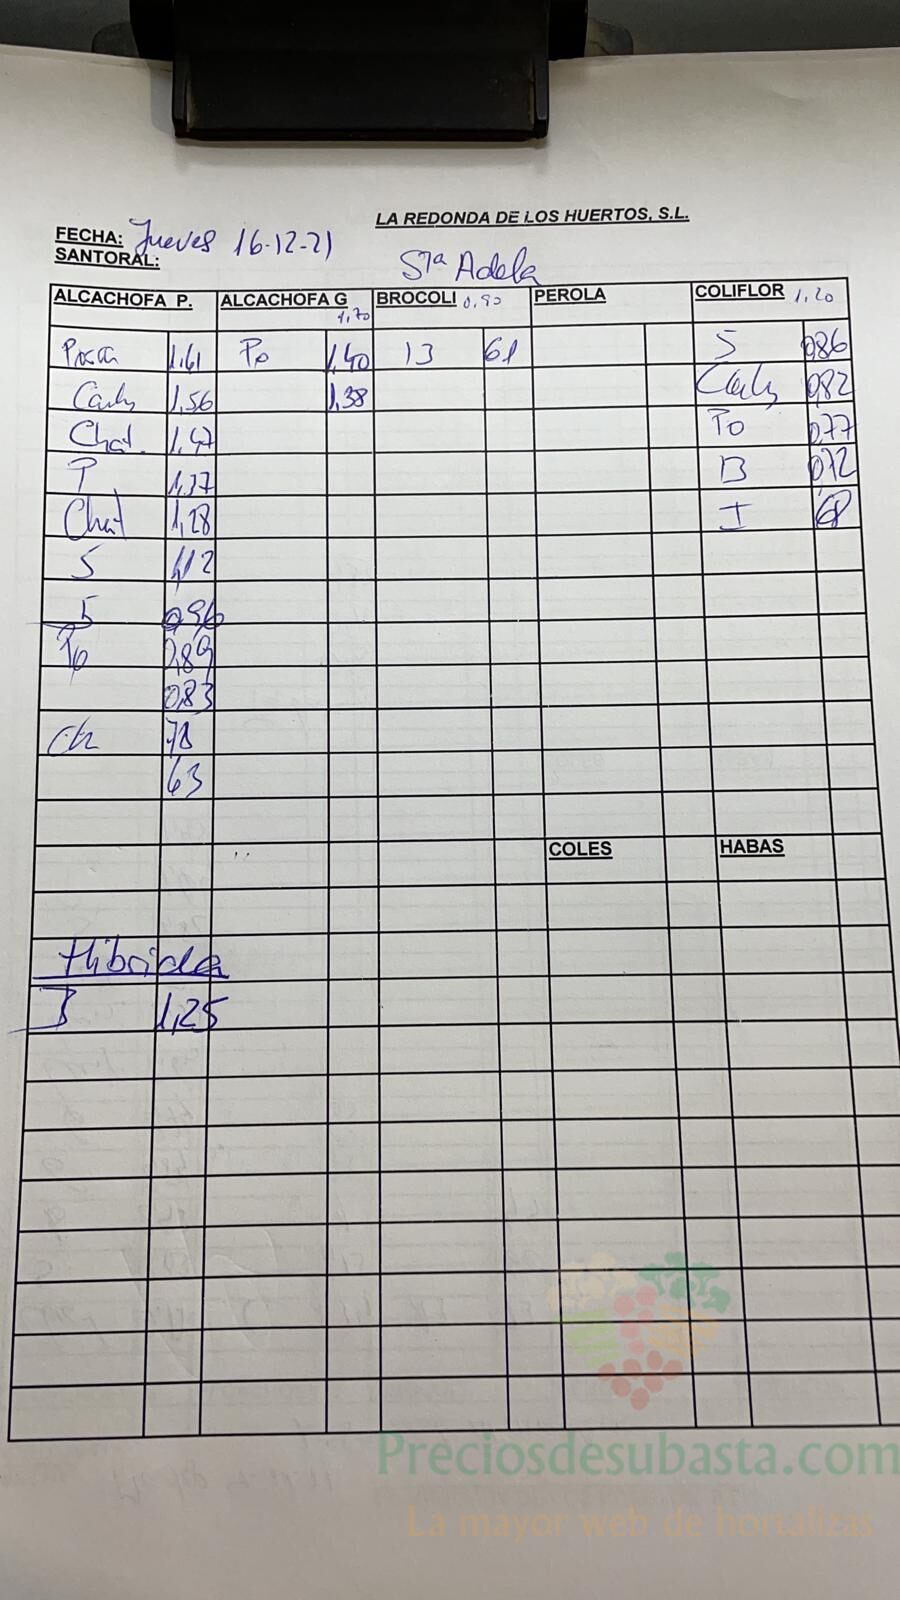 LA REDONDA DE LOS HUERTOS, S.L.
FECHA: Jueves 16-12-21
SANTORAL: Sta Adela
ALCACHOFA P. ALCACHOFA G 1,70 BROCOLI 0,90 PEROLA COLIFLOR 1,20
1,61 Po 1,40 13 61 S 0,86
1,56 1,38 0,82
Chat. 1,47 Po 0,77
P 1,37 B 0,72
Chat 1,28 I 68
S 1,12
5 0,96
Po 0,89
0,83
Ch 78
63
COLES HABAS
Hibrida
1,25
Preciosdesubasta.com
La mayor web de hortalizas